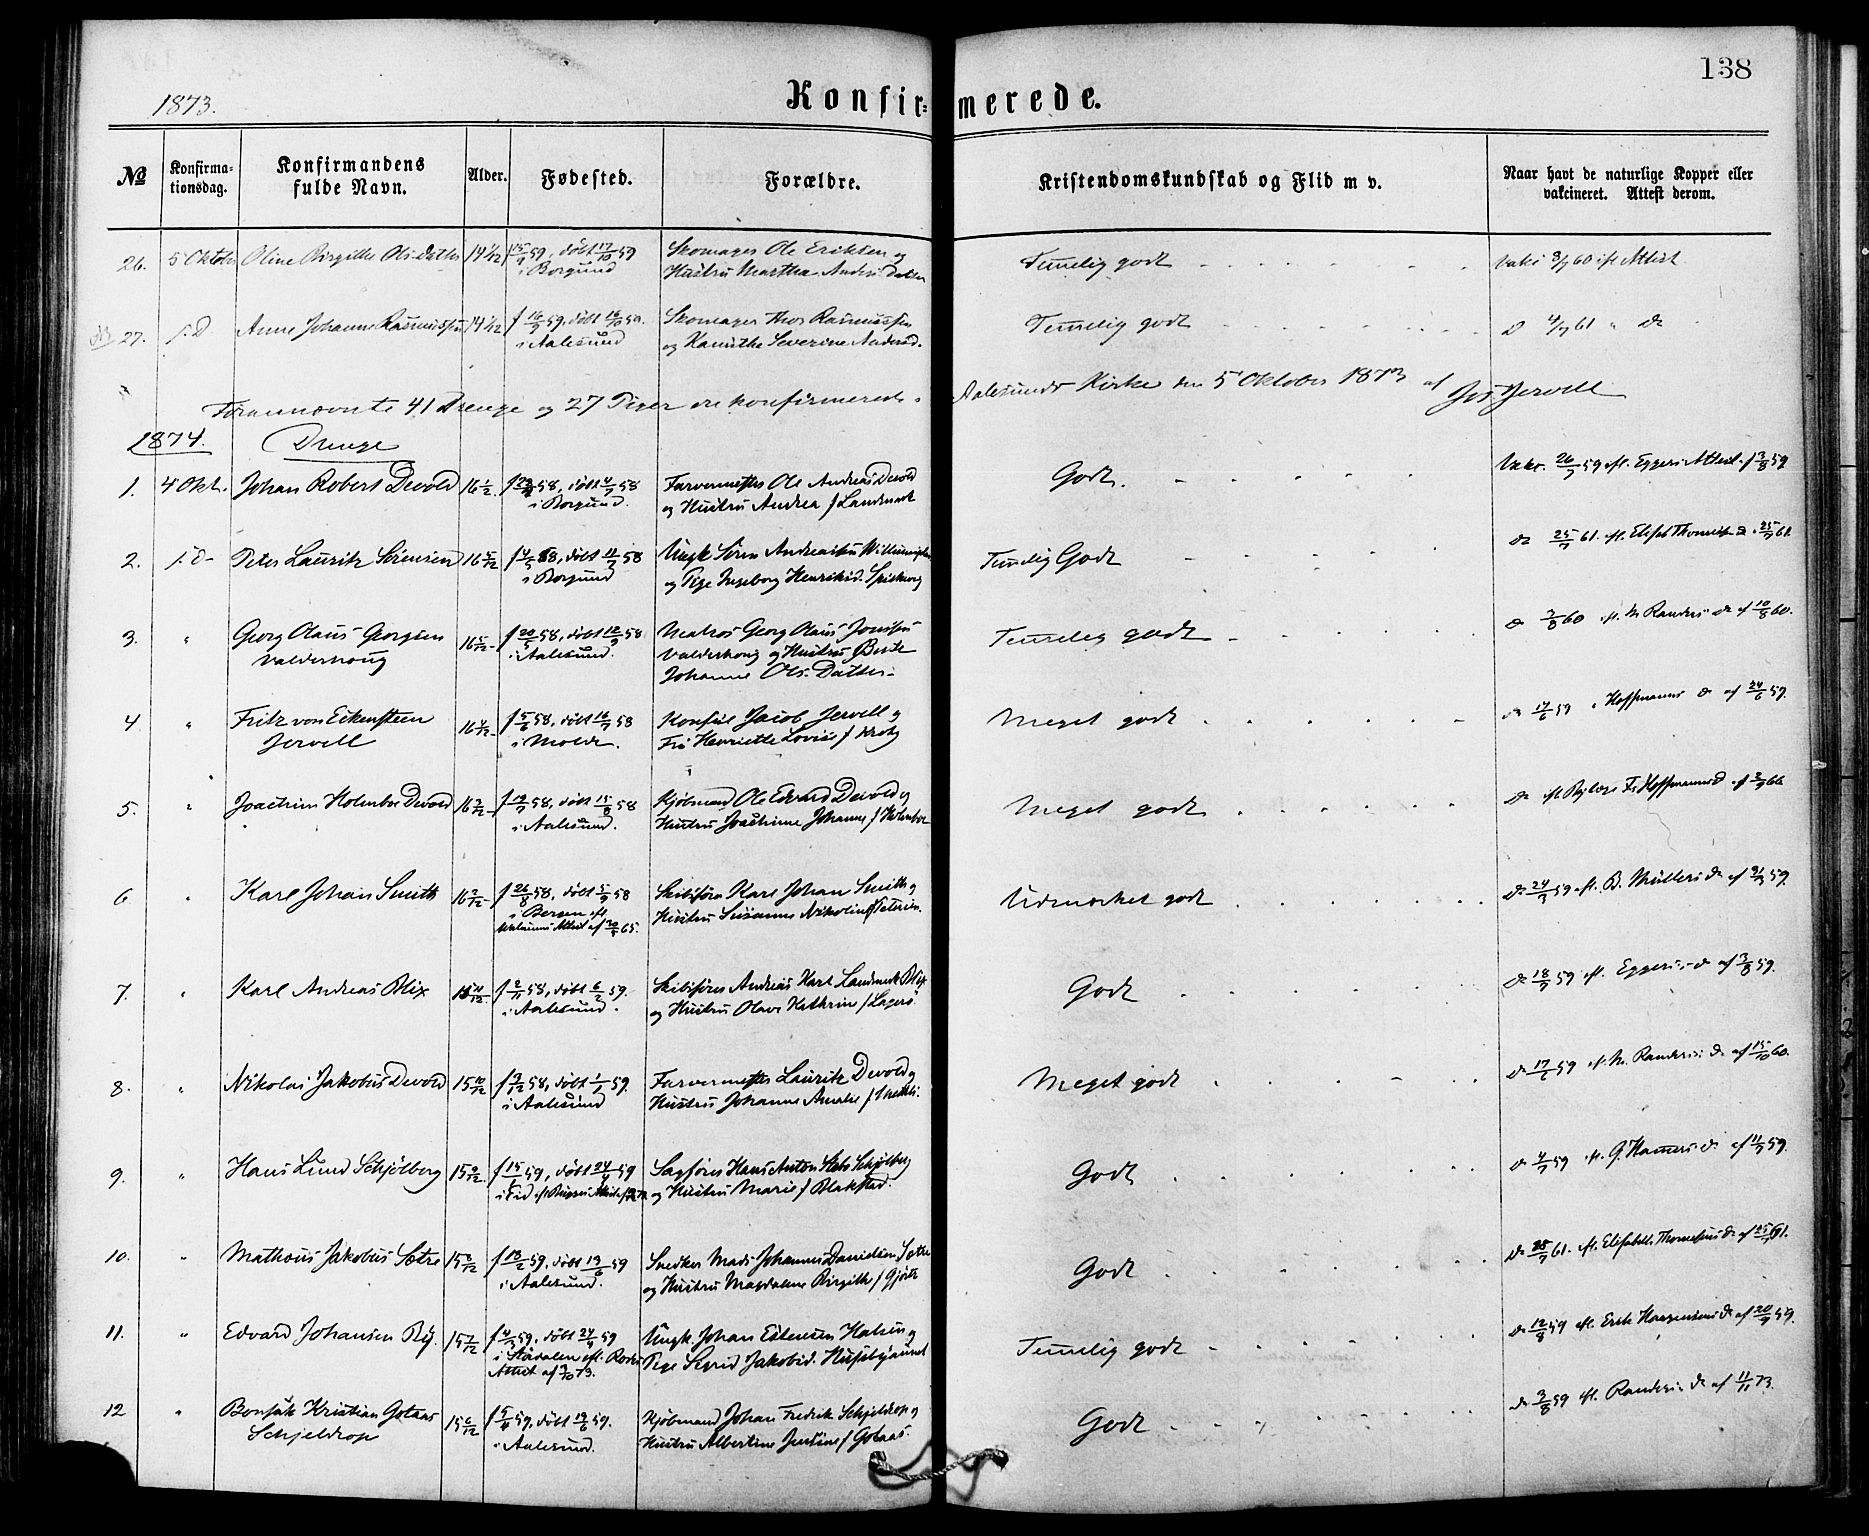 138
1873.
Konfir= merede.
№
Konfirma-
tionsdag.
Konfirmandens
fulde Navn.
Alder.
Fødested.
Forældre.
Kristendomskundskab og Flid m v.
Naar havt de naturlige Kopper eller
vakcineret. Attest derom.
26. 5 Oktober Oline Birgitte Ols Datter 14 1/12 15/9 59, døbt 17/10 59 Skomager Ole Eriksen og Temmelig godt Vakc 3/7 60 ifl Attest
i Borgund Hustru Martha Anders Datter
27. s. D. Anne Johanne Rasmussen 14 1/12 f 16/9 59, døbt 16/10 59. Skomager Thor Rasmussen Temmelig godt d 4/7 61 " do
i Aalesund og Severine Andersd.
Forannævnte 41 Drenge og 27 Piger ere konfirmerede i Aalesunds Kirke den 5 Oktober 1873 af Jervell
1874. Drenge
1. 4 Okt. Johan Robert Devold 16 1/2 58, døbt 4/7 58 Farvermester Ole Andreas Devold Godt. Vakc. 26/7 59 efl. Eggers Attest f 3/8 59
i Borgund. og Hustru Andrea f Landmark
2. s. d Peter Lauritz Sørensen 16 5/12 f 4/5 58, døbt 11/7 58 Ungk Søren Andreas Temmelig Godt do 25/7 61. efl. Elisab Thomesens d. 25/7 61.
i Borgund og Pige Ingeborg Henriksd.
3. " Georg Olaus Georgsen 16 5/12 f 20/5 58, døbt 12/9 58 Matros Georg Olaus Temmelig godt do 3/8 60 efl. M Randers do af 10/8 60.
Valderhoug i Aalesund. Valderhoug og Hustru Berte
Johanne Ols. Datter
4 " Fritz von Eckensteen 16 4/12 f 5/6 58, døbt 16/7 58 Konsul Jacob Jervell og Meget godt do 17/6 59 " Hoffmanns do af 24/6 59.
Jervell i Molde. Fru Henriette Lovise f Krohg
5. " Joachim Holmboe Devold 16 3/12 f 19/7 58, døbt 15/8 58 Kjøbmand Ole Edvard Devold og Meget godt do Fr Hoffmanns d af 66
i Aalesund. Hustru Joachime Johanne f Holmboe
6 " Karl Johan Smith 16 2/12 f 26/8 58, døbt 5/9 58 Skibsfører Karl Johan Smith og Udmærket godt do 24/3 59 efl. B. Müllers do af 59.
i Bergen efl. Hustru Susanna Nikoline f Petersen.
Attest af 65.
7. " Karl Andreas Blix 15 11/12 f 2/11 58, døbt 6/2 59. Skibsfører Andreas Karl Landmark Blix Godt do 18/7 59 efl. Eggers do af 3/8 59.
i Aalesund. og Hustru Olave Kathrine f Lagers
8. " Nikolai Jakobus Devold 15 10/12 f 3/12 58, døbt 1/1 59. Farvermester Lauritz Devold og Meget godt do 17/6 59 efl. M. Randers do af 15/10 60.
i Aalesund Hustru Johanne Amalie f
9. " Hans Lund Schjølberg 15 9/12 f 15/1 59, døbt 24/4 59 Sagfører Hans Anton Schjølberg Godt do 4/7 59 efl. G. Hamers do af 11/7 59.
i Eid og Hustru Marie f Blakstad.
10. " Mathæus Jakobus Sætre 15 8/12 f 13/2 59, døbt 13/6 59 Snedker Mads Johannes Danielsen Sætre Godt do 25/7 61. efl. Elisabeth Thomesens do af 25/7 61.
i Aalesund. og Hustru Magdalene Birgitte f Gjørtz
11. " Edvard Johansen Ry 15 7/12 f 4/3 59, døbt 24/4 59 Ungk. Johan Estensen Halsen og Temmelig godt do 12/8 59 efl. Erik Haagensens do af 20/9 59.
i Størdalen efl. Attest af 3/10 73. Pige Sigrid Jakobsd. Husbyaunet
12 " Bonsak Kristian Gotaas 15 6/12 f 5/4 59, døbt 19/6 59. Kjøbmand Johan Fredrik Schjeldrop og Godt do 3/8 59 efl. Randers do af 11/11 73.
Schjeldrop i Aalesund. Hustru Albertine Justine f Gotaas